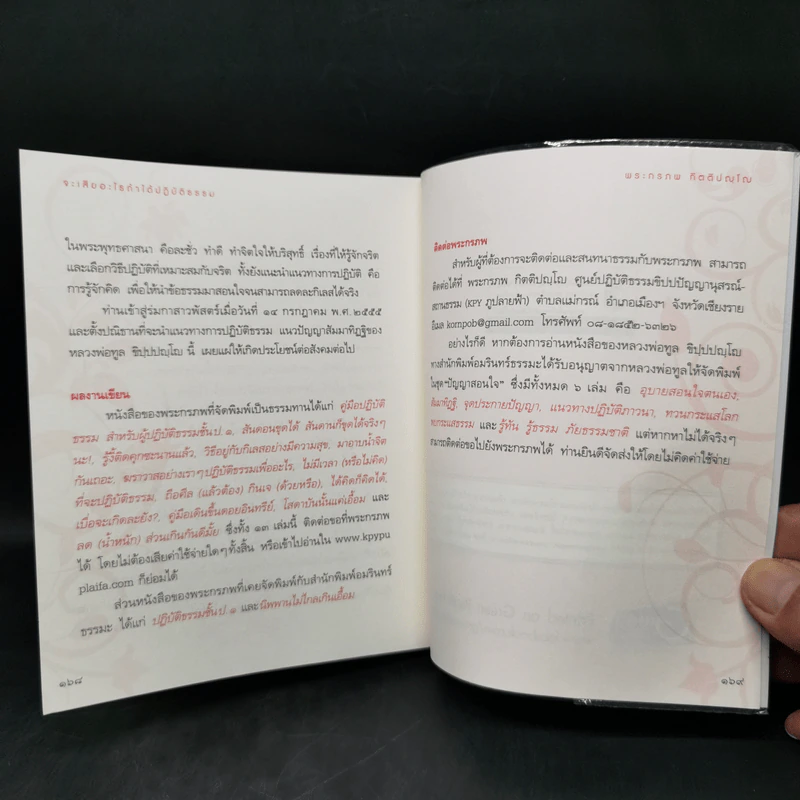 จะเสียอะไรถ้าได้ปฏิบัติธรรม
ในพระพุทธศาสนา คือละชั่ว ทำดี ทำจิตใจให้บริสุทธิ์ เรื่องที่ให้รู้จักจริต
และเลือกวิธีปฏิบัติที่เหมาะสมกับจริต ทั้งยังแนะนำแนวทางการปฏิบัติ คือ
การรู้จักคิด เพื่อให้นำข้อธรรมมาสอนใจจนสามารถลดละกิเลสได้จริง
ท่านเข้าสู่ร่มกาสาวพัสตร์เมื่อวันที่ ๑๔ กรกฎาคม พ.ศ. ๒๕๕๕
และตั้งปณิธานที่จะนำแนวทางการปฏิบัติธรรม แนวปัญญาสัมมาทิฏฐิของ
หลวงพ่อทูล ขิปฺปปญฺโญ นี้ เผยแผ่ให้เกิดประโยชน์ต่อสังคมต่อไป
ผลงานเขียน
หนังสือของพระกรภพที่จัดพิมพ์เป็นธรรมทานได้แก่ คู่มือปฏิบัติ
ธรรม สำหรับผู้ปฏิบัติธรรมชั้น ป. ๑, สันดอนขุดได้ สันดานก็ขุดได้จริงๆ
นะ!, รู้งี้ติดคุกซะนานแล้ว, วิธีอยู่กับกิเลสอย่างมีความสุข, มาอาบน้ำจิต
กันเถอะ, ฆราวาสอย่างเราๆ ปฏิบัติธรรมเพื่ออะไร, ไม่มีเวลา (หรือไม่คิด)
ที่จะปฏิบัติธรรม, ถือศีล (แล้วต้อง) กินเจ (ด้วยหรือ), ได้คิดก็คิดได้,
เบื่อจะเกิดละยัง?, คู่มือเดินขึ้นดอยอินทรีย์, โสดาบันนั้นแค่เอื้อม และ
ลด (น้ำหนัก) ส่วนเกินกันดีมั้ย ซึ่งทั้ง ๑๓ เล่มนี้ ติดต่อขอที่พระกรภพ
ได้ โดยไม่ต้องเสียค่าใช้จ่ายใดๆ ทั้งสิ้น หรือเข้าไปอ่านใน www.kpypu
plaifa.com ก็ย่อมได้
ส่วนหนังสือของพระกรภพที่เคยจัดพิมพ์กับสำนักพิมพ์อมรินทร์
ธรรมะ ได้แก่ ปฏิบัติธรรมชั้น ป. ๑ และนิพพานไม่ไกลเกินเอื้อม
๑๖๘
พระกรภพ กิตติปญฺโญ
ติดต่อพระกรภพ
สำหรับผู้ที่ต้องการจะติดต่อและสนทนาธรรมกับพระกรภพ สามารถ
ติดต่อได้ที่ พระกรภพ กิตติปญฺโญ ศูนย์ปฏิบัติธรรมขิปปปัญญานุสรณ์-
สถานธรรม (KPY ภูปลายฟ้า) ตำบลแม่กรณ์ อำเภอเมืองฯ จังหวัดเชียงราย
อีเมล kornpob@gmail.com โทรศัพท์ ๐๘-๑๘๕๒-๖๓๒๖
อย่างไรก็ดี หากต้องการอ่านหนังสือของหลวงพ่อทูล ขิปฺปปญฺโญ
ทางสำนักพิมพ์อมรินทร์ธรรมะได้รับอนุญาตจากหลวงพ่อทูลให้จัดพิมพ์
ในชุด "ปัญญาสอนใจ" ซึ่งมีทั้งหมด ๖ เล่ม คือ อุบายสอนใจตนเอง,
สัมมาทิฏฐิ, จุดประกายปัญญา, แนวทางปฏิบัติภาวนา, ทวนกระแสโลก
พบกระแสธรรม และ รู้ทัน รู้ธรรม ภัยธรรมชาติ แต่หากหาไม่ได้จริงๆ
สามารถติดต่อขอไปยังพระกรภพได้ ท่านยินดีจัดส่งให้โดยไม่คิดค่าใช้จ่าย
๑๖๙